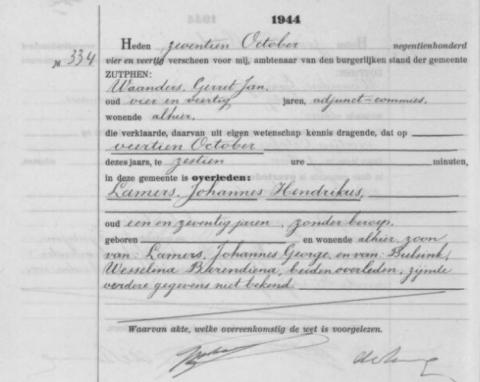 1944
Heden zeventien October negentienhonderd
№ 334 vier en veertig verscheen voor mij, ambtenaar van den burgerlijken stand der gemeente
ZUTPHEN:
Waanders, Gerret Jan,
oud vier en veertig jaren, adjunct-commies,
wonende alhier,
die verklaarde, daarvan uit eigen wetenschap kennis dragende, dat op
veertien October
dezes jaars, te zestien ure minuten,
in deze gemeente is overleden:
Lamers, Johannes Hendrikus,
oud een en zeventig jaren, zonder beroep,
geboren en wonende alhier, zoon
van: Lamers, Johannes George, en van:
Wesselina Berendiena, beiden overleden, zijnde
verdere gegevens niet bekend.
Waarvan akte, welke overeenkomstig de wet is voorgelezen.